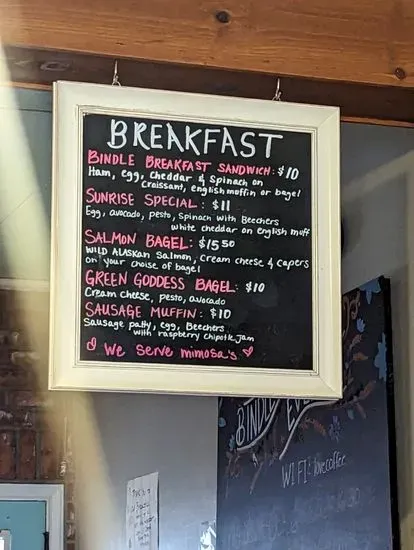 BREAKFAST
BINDLE BREAKFAST SANDWICH: $10
Ham, egg, cheddar & Spinach on
croissant, english muffin or bagel
SUNRISE SPECIAL: $11
Egg, avocado, pesto, spinach with Beechers
white cheddar on english muff
SALMON BAGEL: $15.50
WILD ALASKAN Salmon, cream cheese & capers
on your choise of bagel
GREEN GODDESS BAGEL: $10
Cream cheese, pesto, avocado
SAUSAGE MUFFIN: $10
Sausage patty, egg, Beechers
with raspberry chipotle jam
We serve mimosa's
BINDLE
WIFI: lovecoffee